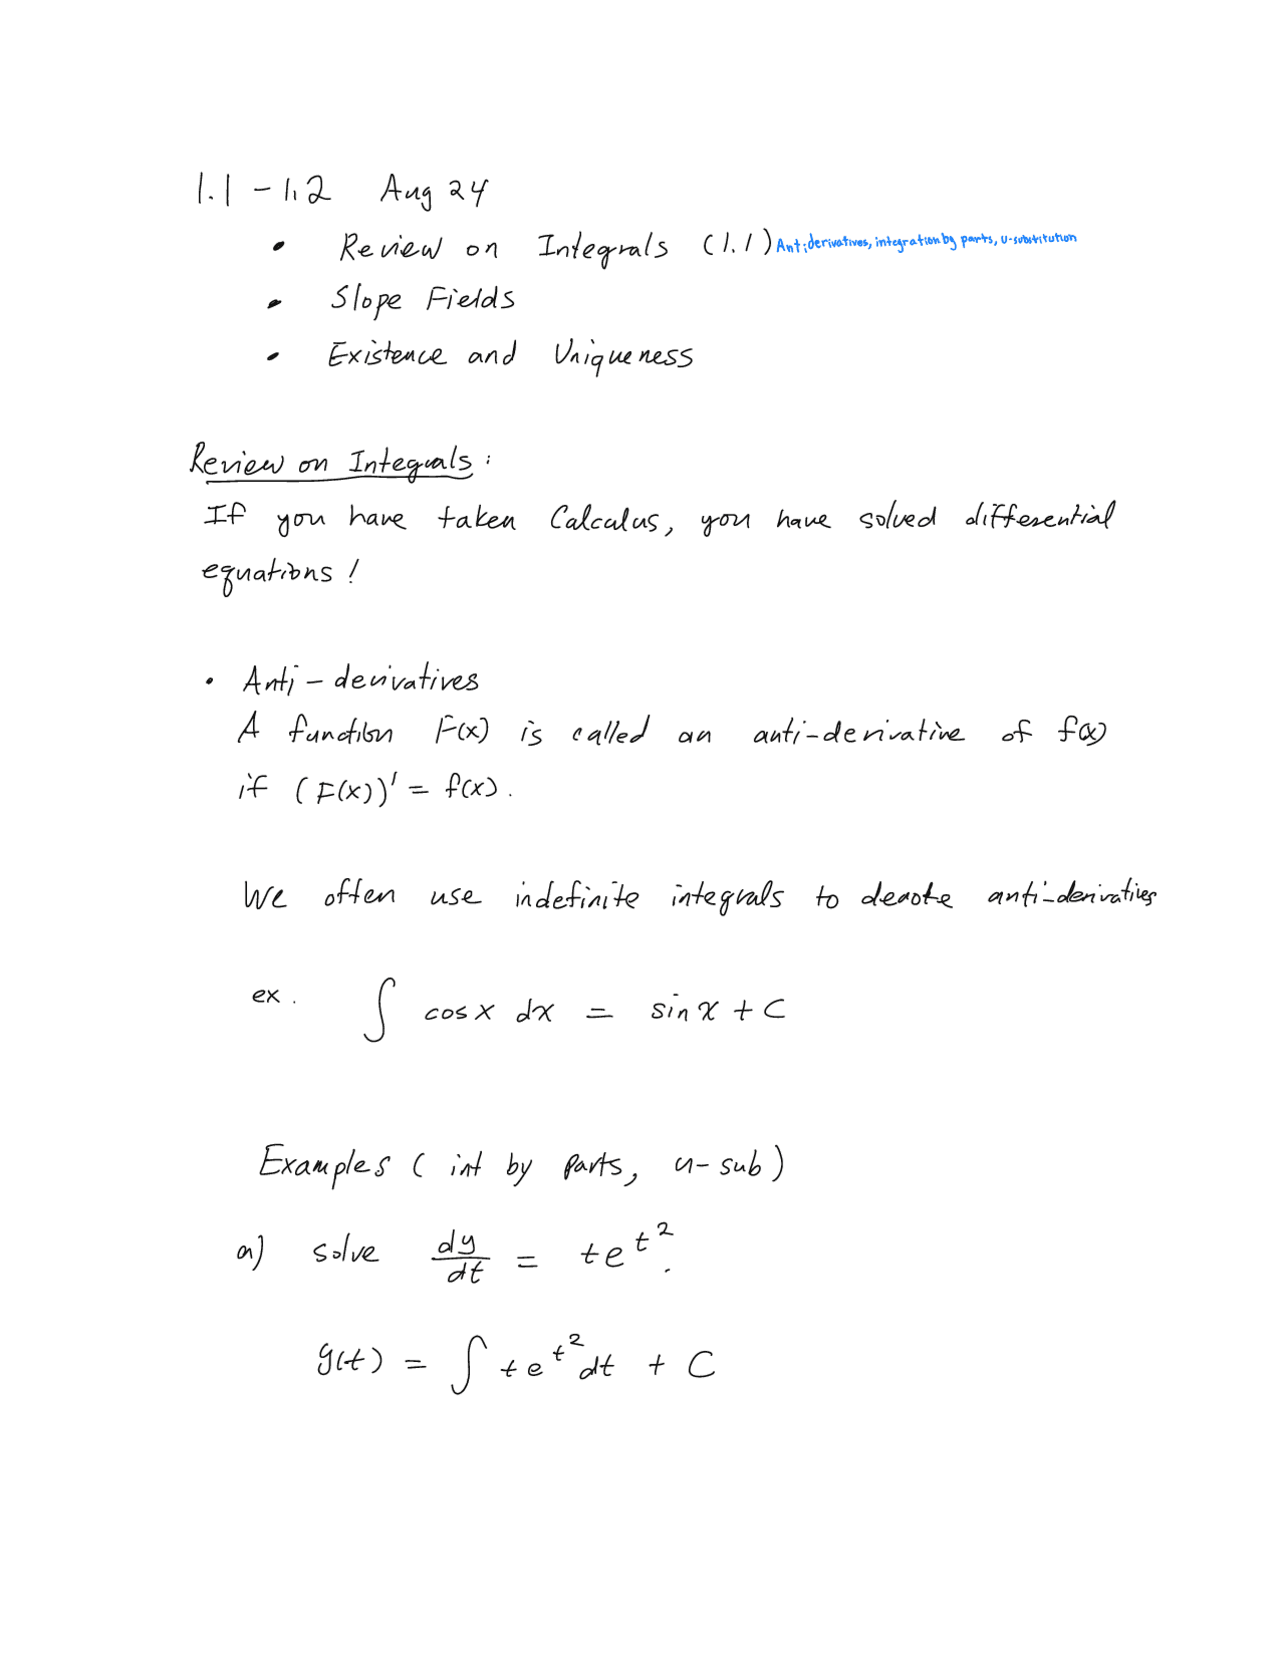 1.1 - 1.2 Aug 24
• Review on Integrals (1.1) Antiderivatives, integration by parts, u-substitution
• Slope Fields
• Existence and Uniqueness
Review on Integrals:
If you have taken Calculus, you have solved differential
equations!
• Anti-derivatives
A function F(x) is called an anti-derivative of f(x)
if (F(x))' = f(x).
We often use indefinite integrals to denote anti-derivatives
ex. ∫ cos x dx = sin x + C
Examples (int by parts, u-sub)
a) solve dy/dt = te^{t^2}.
y(t) = ∫ te^{t^2} dt + C